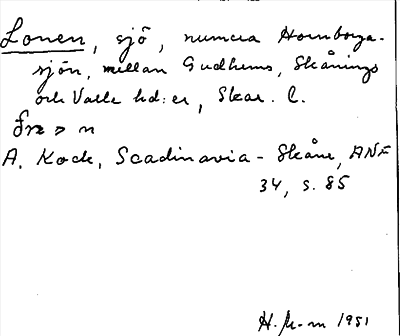 Lonen, sjö, numera Hornborga-
sjön, mellan Gudhems, Skånings
och Valle hd:er, Skar. l.
fnz > n
A. Kock, Scadinavia - Skåne, ANF
34, s. 85
H. Jn-m 1951